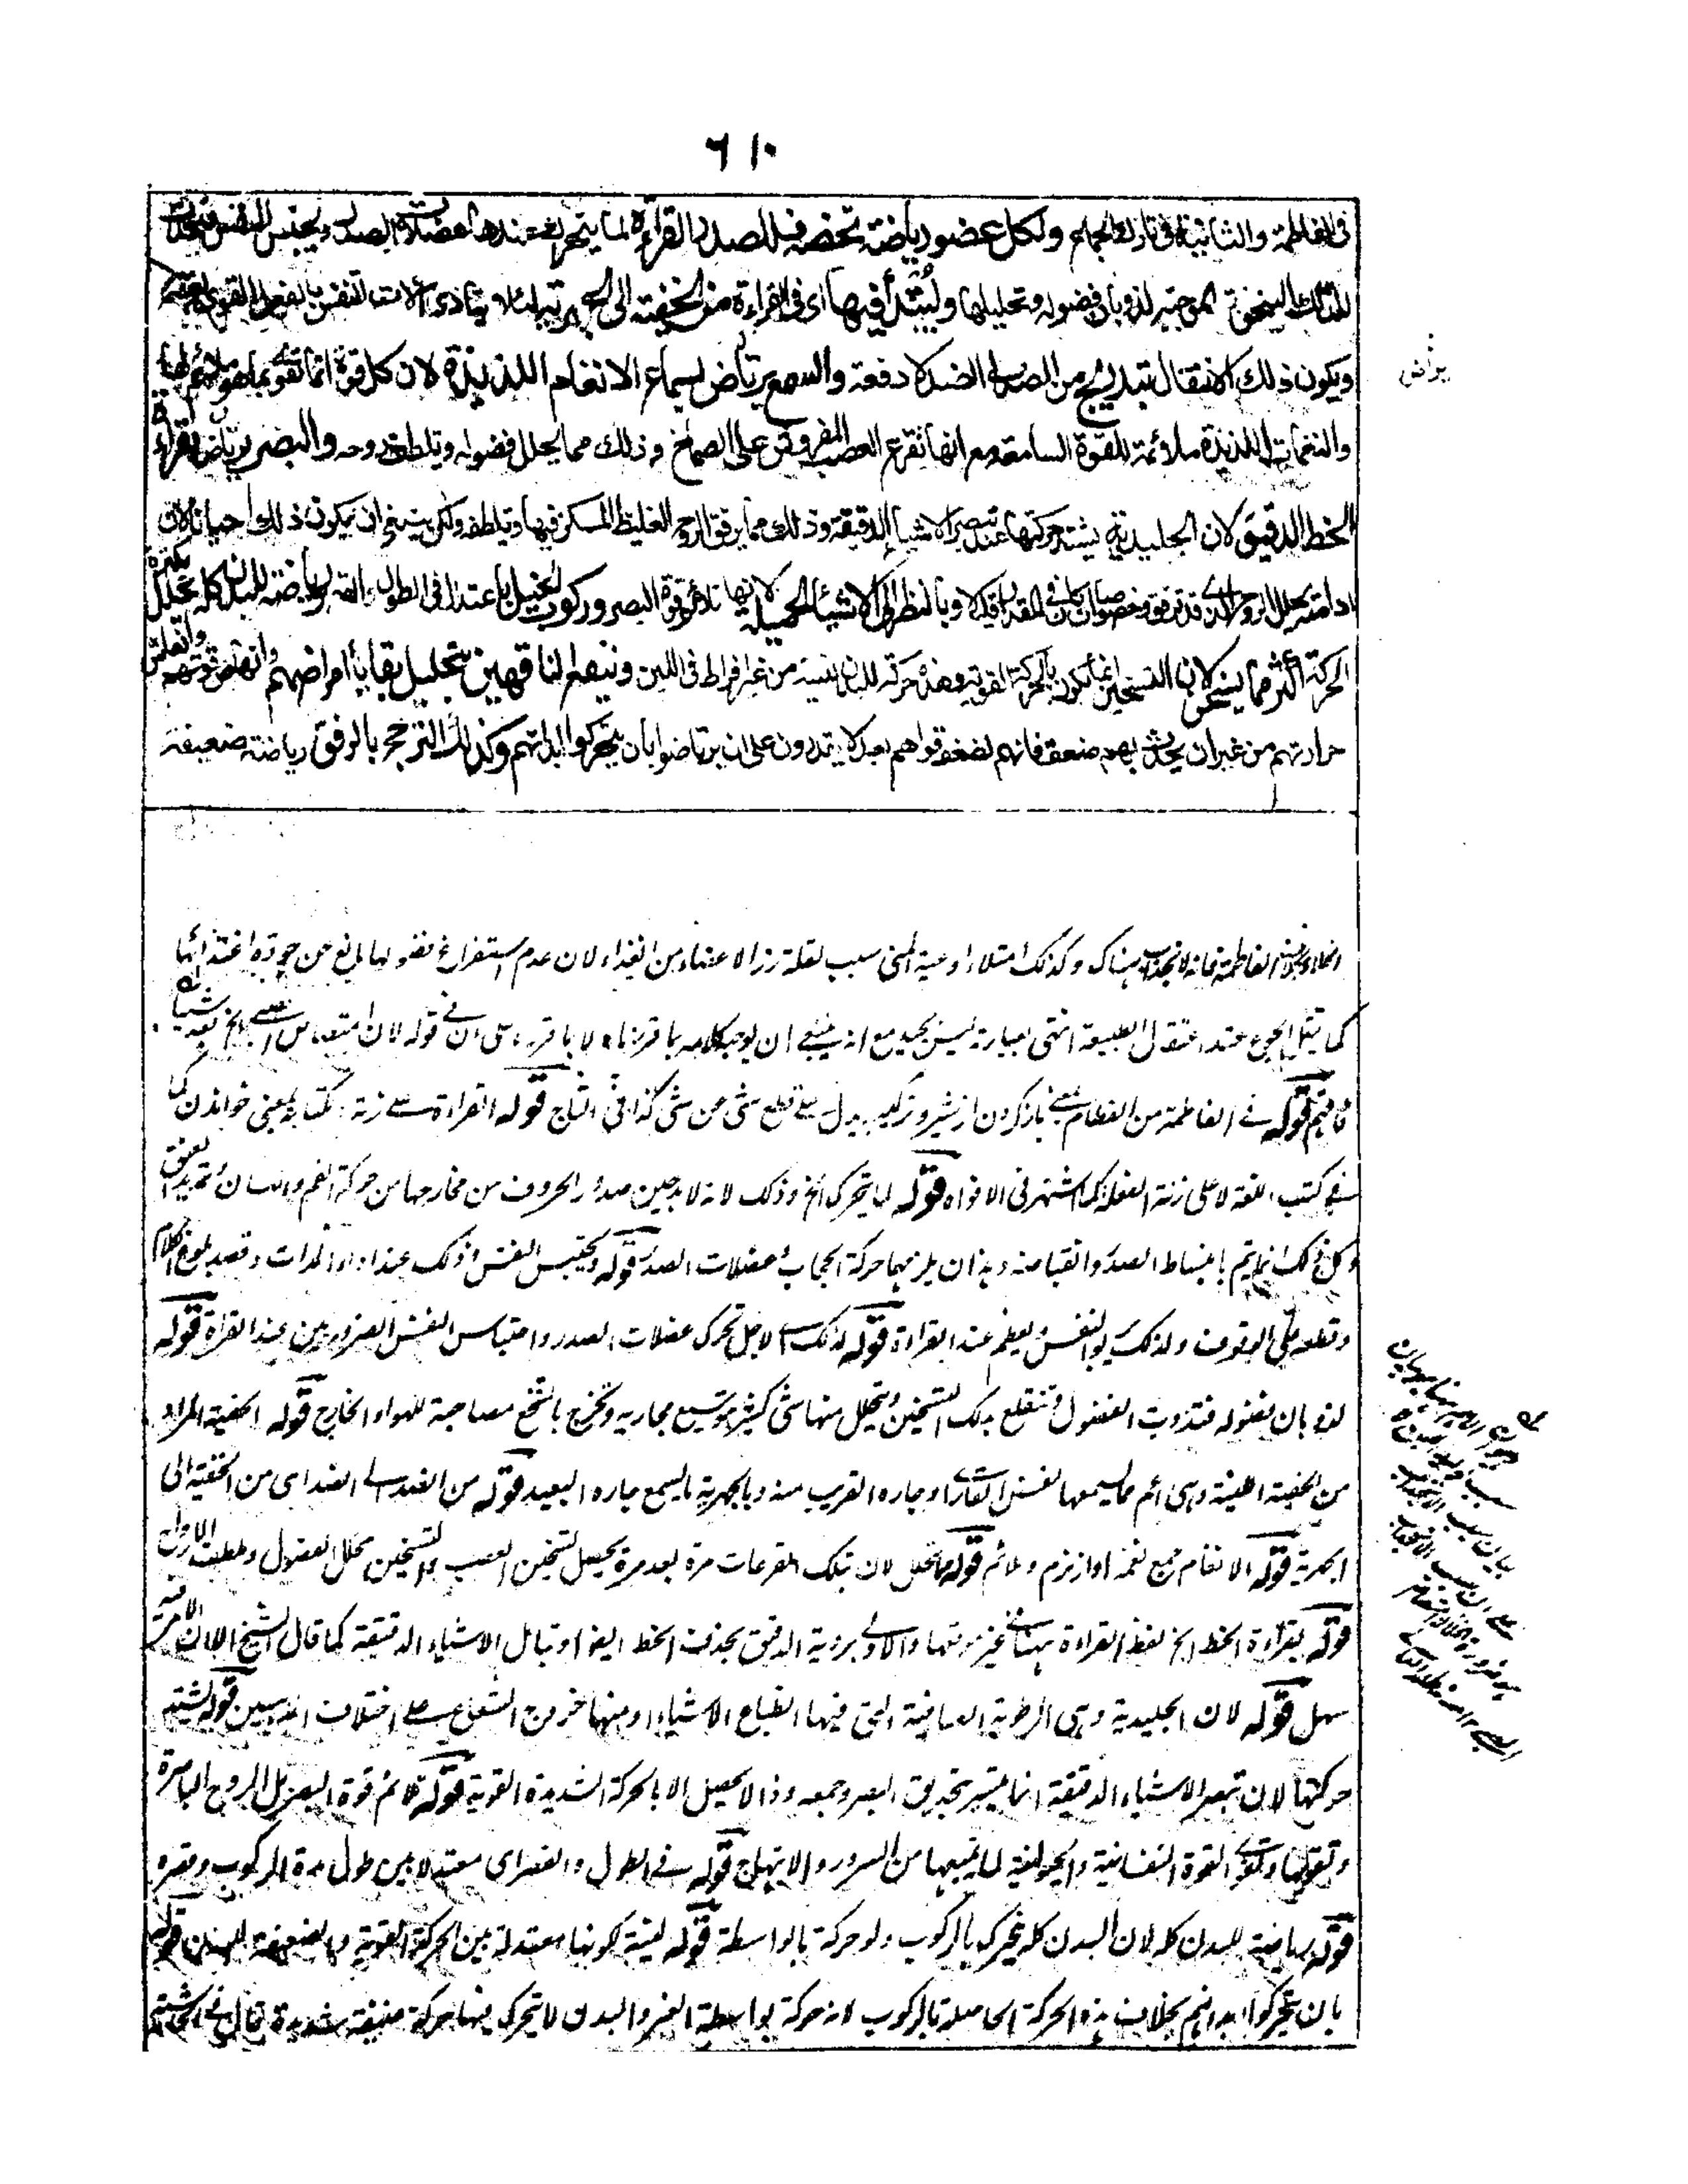 ٦١٠
فى الفاطمة والثانية فى تارك الجماع ولكل عضو رياضة تخصه فللصدر القراءة لما يتحرك عندها عضلات الصدر ويحتبس النفس فيحدث
لذلك السخونة الموجبة لذوبان فضوله وتحليلها وليبتدأ فيها اى فى القراءة من الخفية الى الجهرية لئلا يتاذى آلات التنفس بالفعل القوى بغتة
ويكون ذلك الانتقال بتدريج من الضد الى الضد لا دفعة والسمع يرتاض بسماع الانغام اللذيذة لان كل قوة انما تقوى بما هو ملائم لها
والنغمات اللذيذة ملائمة للقوة السامعة مع انها تقرع العصب المفروش على الصماخ وذلك مما يحلل فضوله ويلطف روحه والبصر يرتاض بقراءة
الخط الدقيق لان الجليدية يشتد حركتها عند تبصر الاشياء الدقيقة وذلك مما يرقق الروح الغليظ المسكن فيها ويلطفه ولكن ينبغى ان يكون ذلك احيانا لان
ادامته يحلل الروح الذى قد ترقق وخصوصا ان كان فى المقدار قليلا وبالنظر الى الاشياء الجميلة لانها تلائم قوة البصر وركوب الخيل باعتدال فى الطول والقصر رياضة للبدن كله يحلل بكثرة
الحركة أكثر مما يسخن لان التسخين انما يكون بالحركة القوية وهذه حركة للبدن لينة من غير افراط فى اللين وينفع الناقهين بتحليل بقايا امراضهم وانهاض قوتهم وانعاش
حرارتهم من غير ان يحدث بهم ضعف فانهم لضعف قواهم بعد لا يقدرون على ان يرتاضوا بان يتحركوا ابدانهم وكذلك الترجح بالرفق رياضة ضعيفة
يراض
الفاطمة فانه لا تجذب هناك وكذلك امتلاء اوعية المنى سبب لقلة رزء الاعضاء من الغذاء لان عدم استفراغ فضولها مانع عن جودة اغتذائها
كما يقل الجوع عند اعتقال الطبيعة انتهى عبارته ليس بجيد مع انه ينبغى ان يوجه كلامه بما قررناه لا بما قرره على ان فى قوله لان
فافهم قوله فى الفاطمة من الفطام بمعنى باز كردن از شير وتركيبه يدل على قطع شئ عن شئ كذا فى التاج قوله القراءة على زنة الكتابة بمعنى خواندن كما
فى كتب اللغة لا على زنة الفعلة كما اشتهر فى الافواه قوله لما يتحرك الخ وذلك لانه لا بد حين صدور الحروف من مخارجها من حركة الفم واللسان وتمديد العنق
وكل ذلك انما يتم بانبساط الصدر وانقباضه وهذان يلزمها حركة الحجاب وعضلات الصدر قوله ويحتبس النفس وذلك عند اداء المدات وقصد بلوغ الكلام
وقطعه على الوقوف ولذلك يربو النفس ويعظم عند القراءة قوله لذلك اى لاجل تحرك عضلات الصدر واحتباس النفس الضروريين عند القراءة قوله
لذوبان فضوله فتذوب الفضول وتنقلع بذلك التسخين ويتحلل منها شئ كثير بتوسيع مجاريه ويخرج بالتنخع مصاحبة للهواء الخارج قوله الخفية المراد
من الخفية الهينة وهى اعم مما يسمعها نفس القارى او جاره القريب منه وبالجهرية ما يسمع جاره البعيد قوله من الضد الى الضد اى من الخفية الى
الجهرية قوله الانغام جمع نغمه آواز نرم وملائم قوله مما يحلل لان بتلك القرعات مرة بعد مرة يحصل تسخين العصب والتسخين محلل الفضول وملطف الارواح
قوله بقراءة الخط الخ لفظ القراءة ههنا فى غير موقعها والاولى برؤية الدقيق بحذف الخط ايضا او تبامل الاشياء الدقيقة كما قال الشيخ الا ان الامر فيه
سهل قوله لان الجليدية وهى الرطوبة الصافية التى فيها انطباع الاشياء او منها خروج الشعاع على اختلاف المذهبين قوله يشتد
حركتها لان تبصر الاشياء الدقيقة انما يتيسر بتحديق البصر وجمعه وذا لا يحصل الا بالحركة الشديدة القوية قوله تلائم قوة البصر بل الروح الباصرة
وتقويها وتقوى القوة النفسانية والحيوانية لما يتبعها من السرور والابتهاج قوله فى الطول والقصر اى معتدلا بين طول مدة الركوب وقصره
قوله رياضة للبدن كله لان البدن كله يتحرك بالركوب ولو حركة بالواسطة قوله لينة كونها معتدلة بين الحركة القوية والضعيفة للبدن قوله
بان يتحركوا ابدانهم بخلاف هذه الحركة الحاصلة بالركوب لانه حركة بواسطة الغير والبدن لا يتحرك فيها حركة عنيفة شديدة قال فى الحاشية